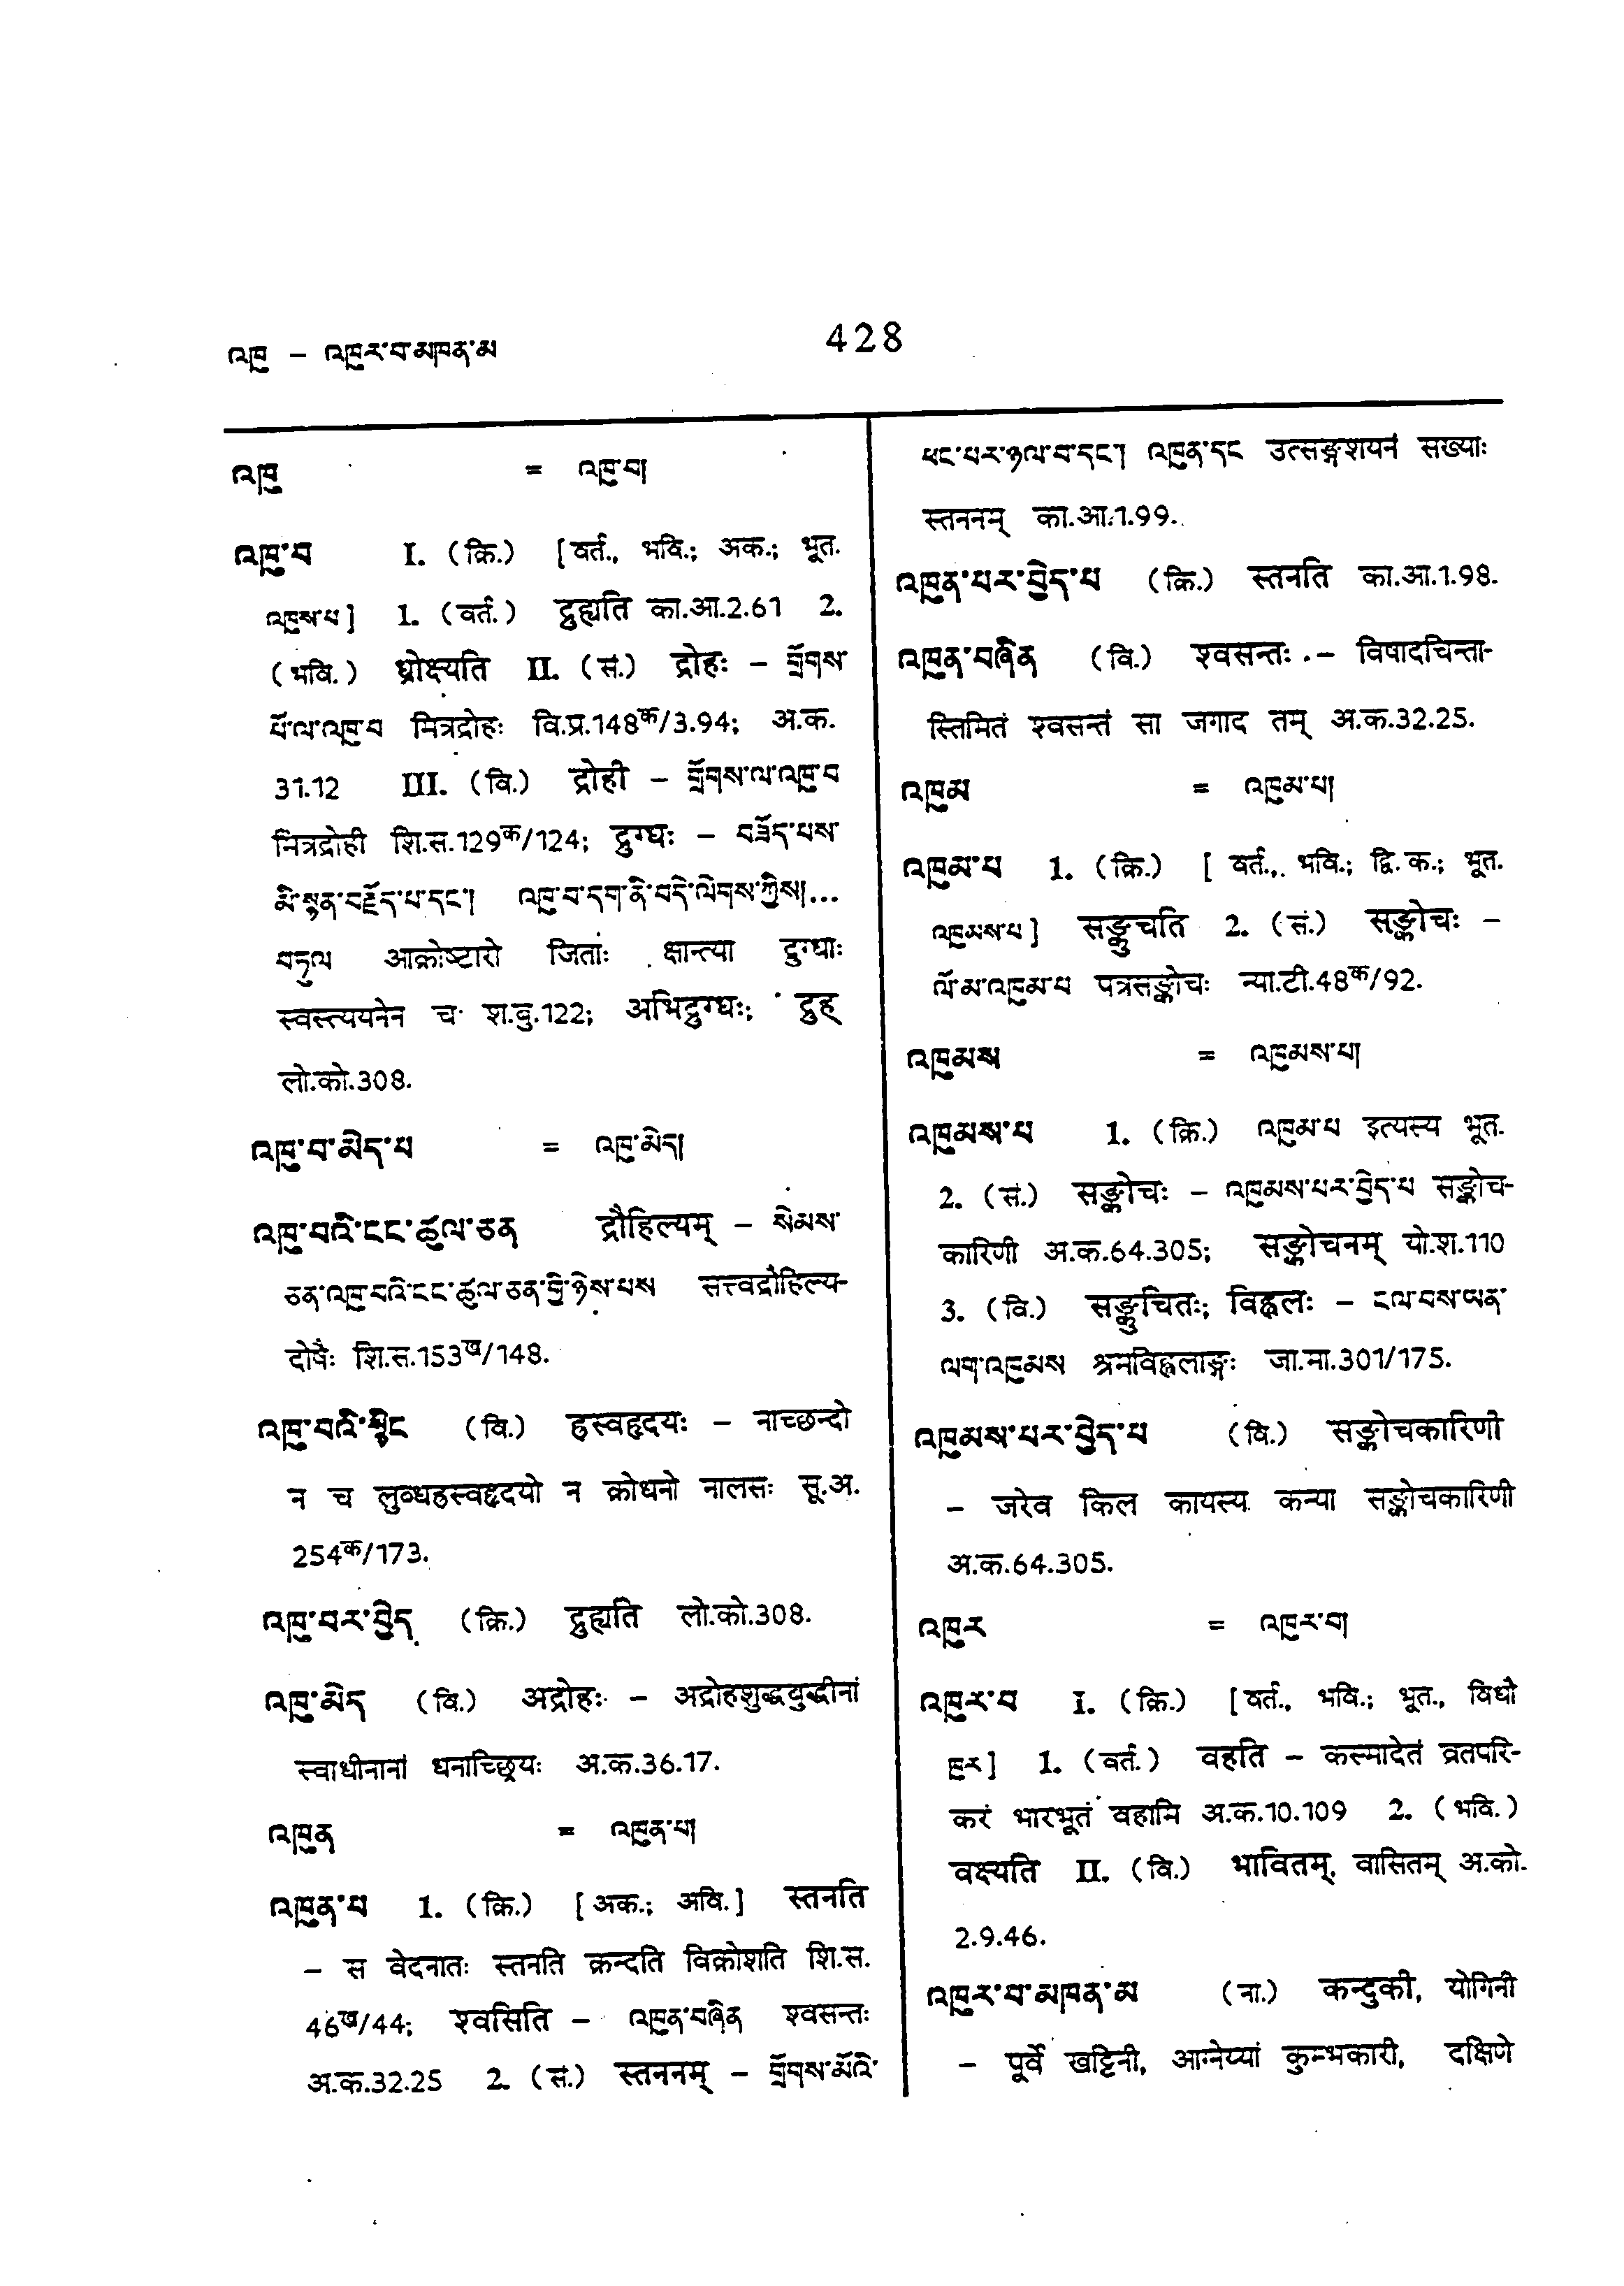 འཁུ – འཁུར་བ་མཁན་མ
428
འཁུ = འཁུ་བ།
འཁུ་བ I. (क्रि.) [वर्त., भवि.; अक.; भूत.
འཁུས་པ] 1. (वर्त.) द्रुह्यति का.आ.2.61 2.
(भवि.) ध्रोक्ष्यति II. (सं.) द्रोहः – གྲོགས་
པོ་ལ་འཁུ་བ मित्रद्रोहः वि.प्र.148क/3.94; अ.क.
31.12 III. (वि.) द्रोही – གྲོགས་ལ་འཁུ་བ
मित्रद्रोही शि.स.129क/124; द्रुग्धः – བཟོད་པས་
མི་སྙན་བརྗོད་པ་དང་། འཁུ་བ་དག་ནི་བདེ་ལེགས་ཀྱིས།...
བཏུལ आक्रोष्टारो जिताः क्षान्त्या द्रुग्धाः
स्वस्त्ययनेन च श.बु.122; अभिद्रुग्धः; द्रुह्
लो.को.308.
འཁུ་བ་མེད་པ = འཁུ་མེད།
འཁུ་བའི་ངང་ཚུལ་ཅན द्रौहिल्यम् – སེམས་
ཅན་འཁུ་བའི་ངང་ཚུལ་ཅན་གྱི་ཉེས་པས सत्त्वद्रौहिल्य-
दोषैः शि.स.153ख/148.
འཁུ་བའི་སྙིང (वि.) ह्रस्वहृदयः – नाच्छन्दो
न च लुब्धह्रस्वहृदयो न क्रोधनो नालसः सू.अ.
254क/173.
འཁུ་བར་བྱེད (क्रि.) द्रुह्यति लो.को.308.
འཁུ་མེད (वि.) अद्रोहः – अद्रोहशुद्धबुद्धीनां
स्वाधीनानां धनाच्छ्रियः अ.क.36.17.
འཁུན = འཁུན་པ།
འཁུན་པ 1. (क्रि.) [अक.; अवि.] स्तनति
– स वेदनातः स्तनति क्रन्दति विक्रोशति शि.स.
46ख/44; श्वसिति – འཁུན་བཞིན श्वसन्तः
अ.क.32.25 2. (सं.) स्तननम् – གྲོགས་མོའི་
ཕང་པར་ཉལ་བ་དང་། འཁུན་དང उत्सङ्गशयनं सख्याः
स्तननम् का.आ.1.99.
འཁུན་པར་བྱེད་པ (क्रि.) स्तनति का.आ.1.98.
འཁུན་བཞིན (वि.) श्वसन्तः – विषादचिन्ता-
स्तिमितं श्वसन्तं सा जगाद तम् अ.क.32.25.
འཁུམ = འཁུམ་པ།
འཁུམ་པ 1. (क्रि.) [ वर्त., भवि.; द्वि.क.; भूत.
འཁུམས་པ] सङ्कुचति 2. (सं.) सङ्कोचः –
ལོ་མ་འཁུམ་པ पत्रसङ्कोचः न्या.टी.48क/92.
འཁུམས = འཁུམས་པ།
འཁུམས་པ 1. (क्रि.) འཁུམ་པ इत्यस्य भूत.
2. (सं.) सङ्कोचः – འཁུམས་པར་བྱེད་པ सङ्कोच-
कारिणी अ.क.64.305; सङ्कोचनम् यो.श.110
3. (वि.) सङ्कुचितः; विह्वलः – ངལ་བས་ཡན་
ལག་འཁུམས श्रमविह्वलाङ्गः जा.मा.301/175.
འཁུམས་པར་བྱེད་པ (वि.) सङ्कोचकारिणी
– जरेव किल कायस्य कन्या सङ्कोचकारिणी
अ.क.64.305.
འཁུར = འཁུར་བ།
འཁུར་བ I. (क्रि.) [वर्त., भवि.; भूत., विधौ
ཁུར] 1. (वर्त.) वहति – कस्मादेतं व्रतपरि-
करं भारभूतं वहामि अ.क.10.109 2. (भवि.)
वक्ष्यति II. (वि.) भावितम्, वासितम् अ.को.
2.9.46.
འཁུར་བ་མཁན་མ (ना.) कन्दुकी, योगिनी
– पूर्वे खट्टिनी, आग्नेय्यां कुम्भकारी, दक्षिणे